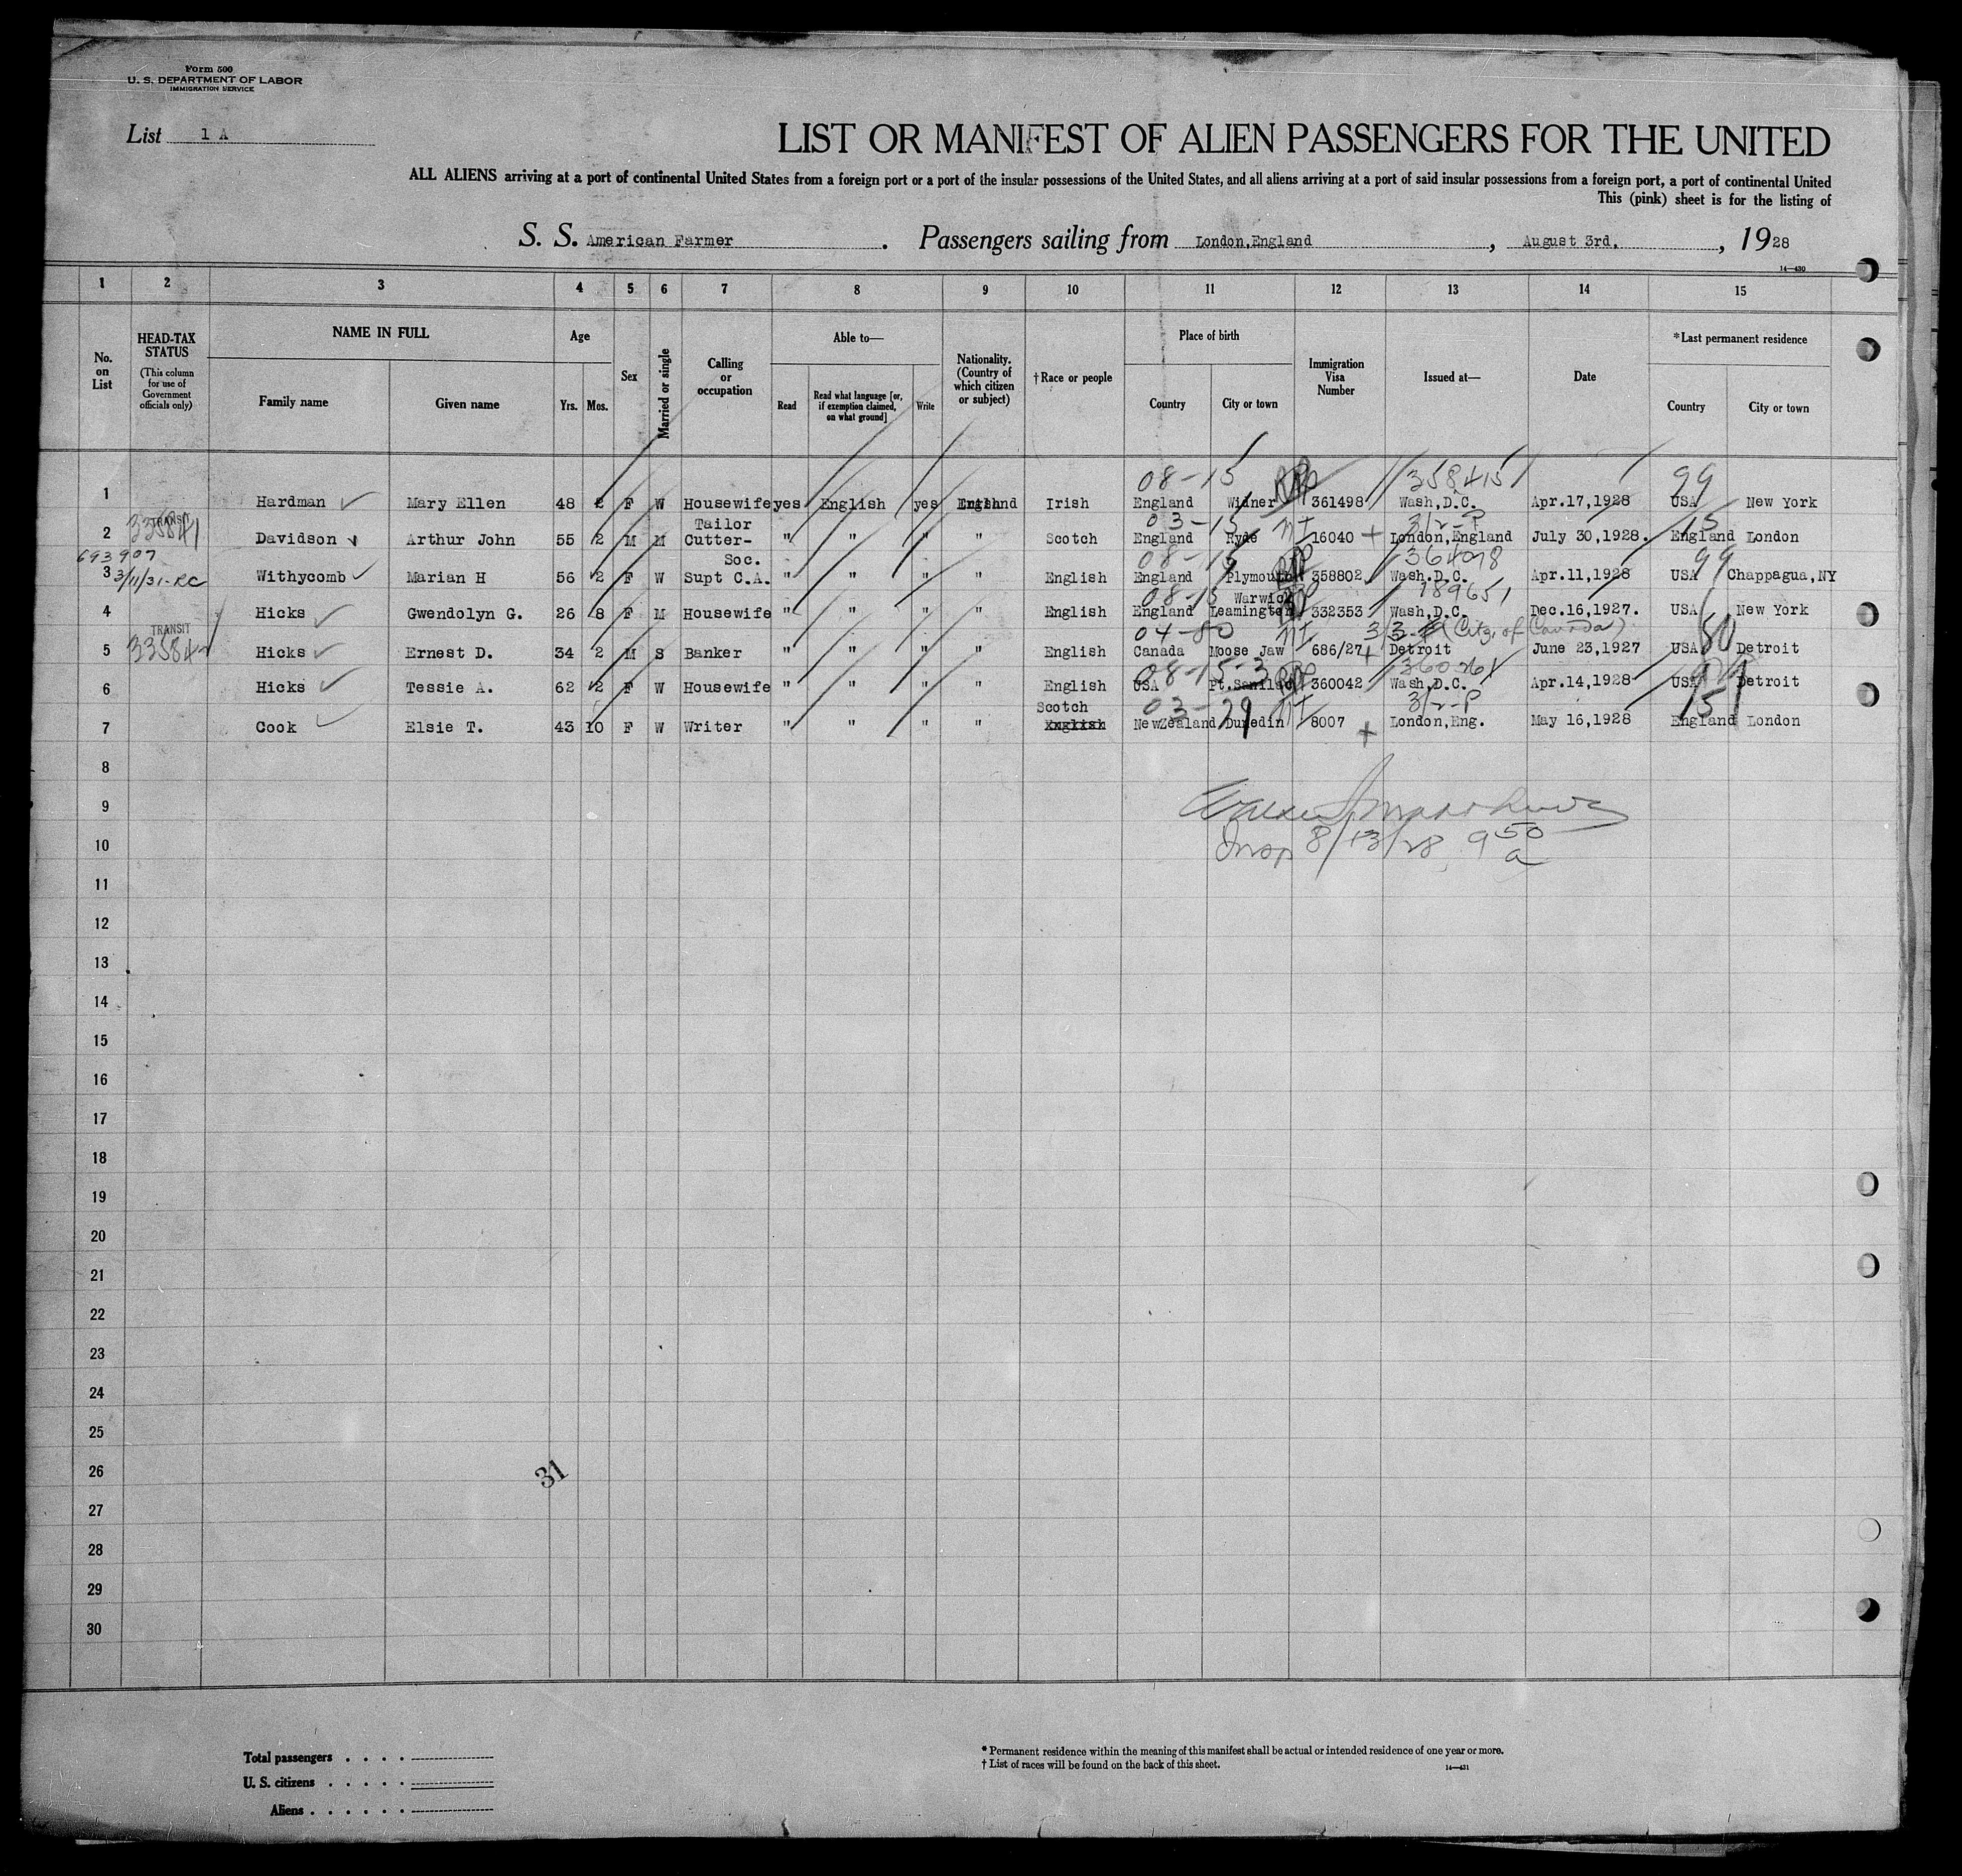 Form 500
U. S. DEPARTMENT OF LABOR
IMMIGRATION SERVICE
List 1 A
LIST OR MANIFEST OF ALIEN PASSENGERS FOR THE UNITED
ALL ALIENS arriving at a port of continental United States from a foreign port or a port of the insular possessions of the United States, and all aliens arriving at a port of said insular possessions from a foreign port, a port of continental United
This (pink) sheet is for the listing of
S. S. American Farmer . Passengers sailing from London,England , August 3rd, , 1928
14—430
1 2 3 4 5 6 7 8 9 10 11 12 13 14 15
No. on List
HEAD-TAX STATUS (This column for use of Government officials only)
NAME IN FULL
Family name Given name
Age
Yrs. Mos.
Sex
Married or single
Calling or occupation
Able to—
Read Read what language [or, if exemption claimed, on what ground] Write
Nationality. (Country of which citizen or subject)
† Race or people
Place of birth
Country City or town
Immigration Visa Number
Issued at—
Date
*Last permanent residence
Country City or town
08-15 358415 99
1 Hardman Mary Ellen 48 2 F W Housewife yes English yes England Irish England Widner 361498 Wash,D.C. Apr.17,1928 USA New York
TRANSIT 335841 Tailor 03-15 NI 3/2-P 15
2 Davidson Arthur John 55 2 M M Cutter- " " " " Scotch England Ryde 16040 London,England July 30,1928. England London
693907 Soc. 08-15 364098 99
3 3/11/31-RC Withycomb Marian H 56 2 F W Supt C.A. " " " " English England Plymouth 358802 Wash.D.C. Apr.11,1928 USA Chappagua,NY
08-15 Warwick 789651
4 Hicks Gwendolyn G. 26 8 F M Housewife " " " " English England Leamington 332353 Wash,D.C. Dec.16,1927. USA New York
TRANSIT 04-80 NI (Citz. of Canada)
5 Hicks Ernest D. 34 2 M S Banker " " " " English Canada Moose Jaw 686/27 Detroit June 23,1927 USA Detroit
08-15-3 360261
6 Hicks Tessie A. 62 2 F W Housewife " " " " English USA Pt.Sanilac 360042 Wash,D.C. Apr.14,1928 USA Detroit
Scotch 03-29 NI 3/2-P 15
7 Cook Elsie T. 43 10 F W Writer " " " " English NewZealand Dunedin 8007 London,Eng. May 16,1928 England London
8
9
10 Insp 8/13/28 9 50 a
11
12
13
14
15
16
17
18
19
20
21
22
23
24
25
26
31
27
28
29
30
Total passengers . . . .
U. S. citizens . . . . .
Aliens . . . . . .
* Permanent residence within the meaning of this manifest shall be actual or intended residence of one year or more.
† List of races will be found on the back of this sheet.
14—431